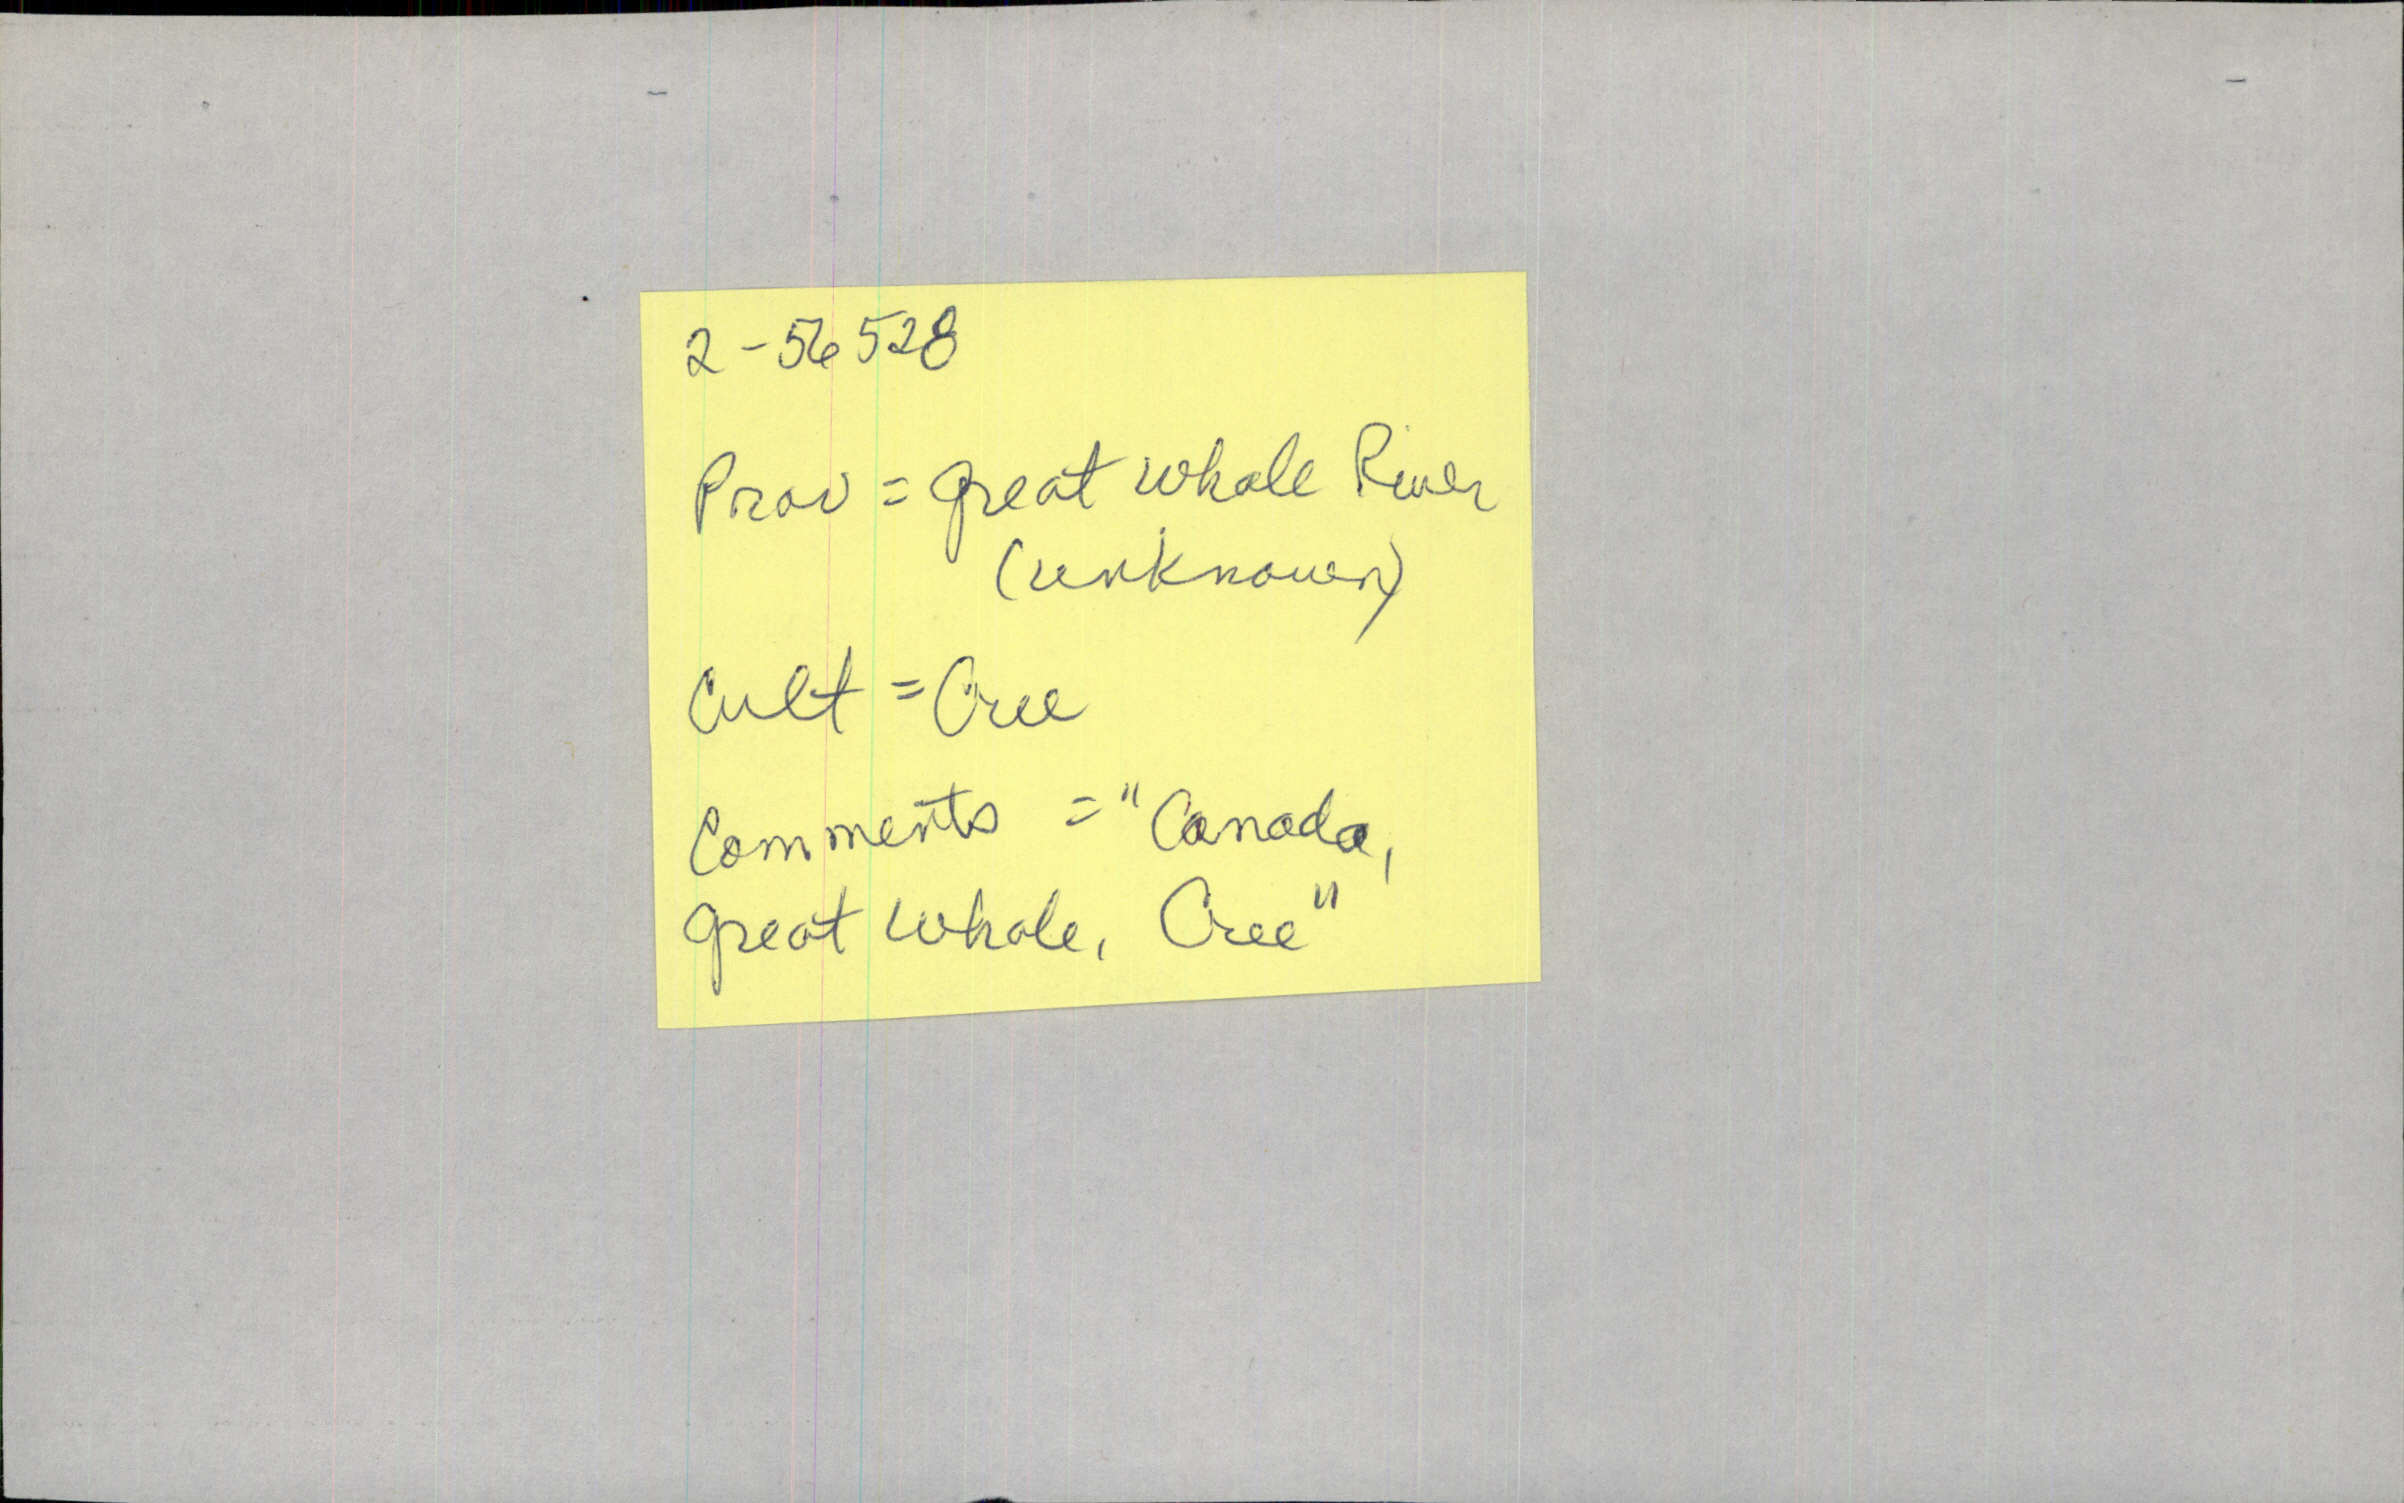 2-56528
Prov = Great Whale River
(unknown)
Cult = Cree
Comments = "Canada,
Great Whale, Cree"